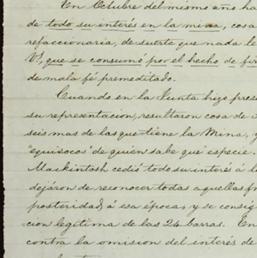 En Octubre del mismo año ha
de todo su interés en la mina, cosa
refaccionaria, de suerte que nada le
V, que se consumó por el hecho de fir
de mala fé premeditado.
Cuando en la Junta hizo pres
su representacion, resultaron cosa de
seis mas de las que tiene la Mina, y
"equisocos" de quién sabe que especie.
Mackintosh cedió todo su interés á l
dejáron de reconocer todas aquellas f
posteridad, á esa época, y se consig
cion legítima de las 24 barras. En
contra la omision del interés de